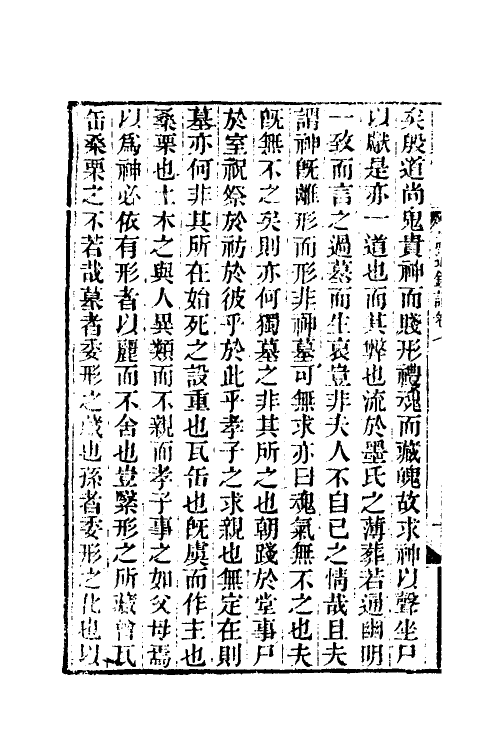 矣殷道尚鬼貴神而賤形禮魂而藏魄故求神以聲坐尸
以獻是亦一道也而其弊也流於墨氏之薄葬若通幽明
一致而言之過墓而生哀豈非夫人不自已之情哉且夫
謂神旣離形而形非神墓可無求亦曰魂氣無不之也夫
旣無不之矣則亦何獨墓之非其所之也朝踐於堂事尸
於室祝祭於祊於彼乎於此乎孝子之求親也無定在則
墓亦何非其所在始死之設重也瓦缶也旣虞而作主也
桑栗也土木之與人異類而不親而孝子事之如父母焉
以爲神必依有形者以麗而不舍也豈緊形之所藏曾瓦
缶桑栗之不若哉墓者委形之藏也孫者委形之化也以